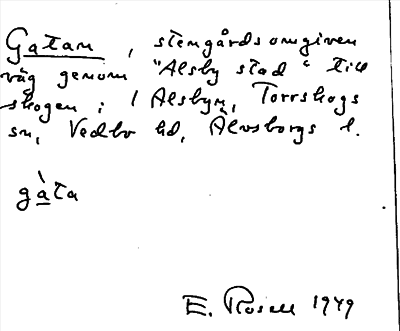 Gatan, stengårdsomgiven
väg genom "Alsby stad" till
skogen i Alsbyn, Torrskogs
sn, Vedbo hd, Älvsborgs l.
gàta
E. Rosell 1949